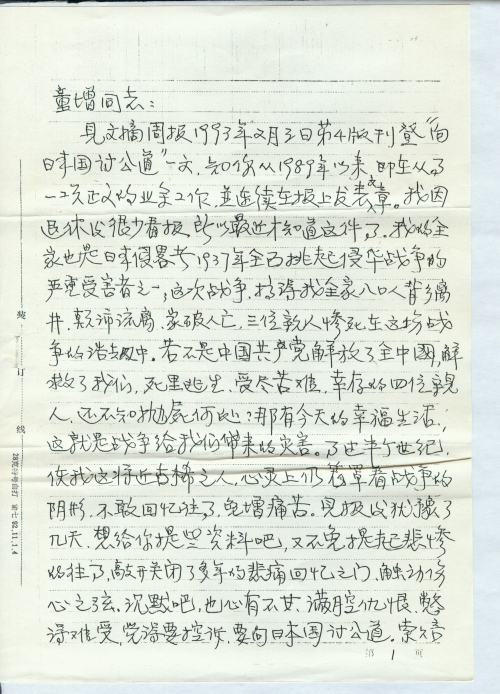 童增同志:
见文摘周报1993年2月5日第4版刊登“向
日本国讨公道”一文,知你从1987年以来即在从事
一项正义的业余工作,并连续在报上发表文章。我因
退休后很少看报,所以最近才知道这件事。我的全
家也是日本侵略者1937年全面挑起侵华战争的
严重受害者之一,这次战争,搞得我全家八口人背乡离
井,颠沛流离,家破人亡,三位亲人惨死在这场战
争的浩劫中。若不是中国共产党解放了全中国,解
救了我们,死里逃生,受尽苦难,幸存的四位亲
人,还不知抛尸何处?那有今天的幸福生活,
这就是战争给我们带来的灾害。事过半个世纪,
使我这将近古稀之人,心灵上仍笼罩着战争的
阴影,不敢回忆往事,免增痛苦。见报后犹豫了
几天,想给你提些资料吧,又不免提起悲惨
的往事,敲开关闭了多年的悲痛回忆之门,触动伤
心之弦。沉默吧,也心有不甘,满腔仇恨,憋
得难受,觉得要控诉,要向日本国讨公道。索赔
第 1 页
装
订
线